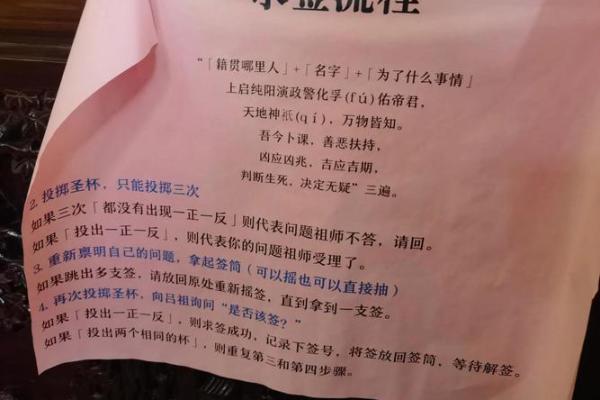 求签流程
“「籍贯哪里人」+「名字」+「为了什么事情」
上启纯阳演政警化孚(fú)佑帝君，
天地神祇(qí)，万物皆知。
吾今卜课，善恶扶持，
凶应凶兆，吉应吉期，
判断生死，决定无疑”三遍。
2. 投掷圣杯，只能投掷三次
如果三次「都没有出现一正一反」则代表问题祖师不答，请回。
如果「投出一正一反」，则代表你的问题祖师受理了。
3. 重新禀明自己的问题，拿起签筒（可以摇也可以直接抽）
如果跳出多支签，请放回原处重新摇签，直到拿到一支签。
4. 再次投掷圣杯，向吕祖询问“是否该签？”
如果「投出一正一反」，则求签成功，记录下签号，将签放回签筒，等待解签。
如果「投出两个相同的杯」，则重复第三和第四步骤。